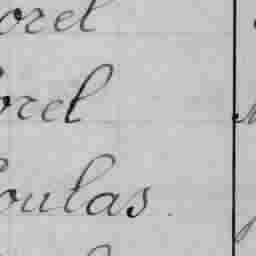 orel
orel
oulas.